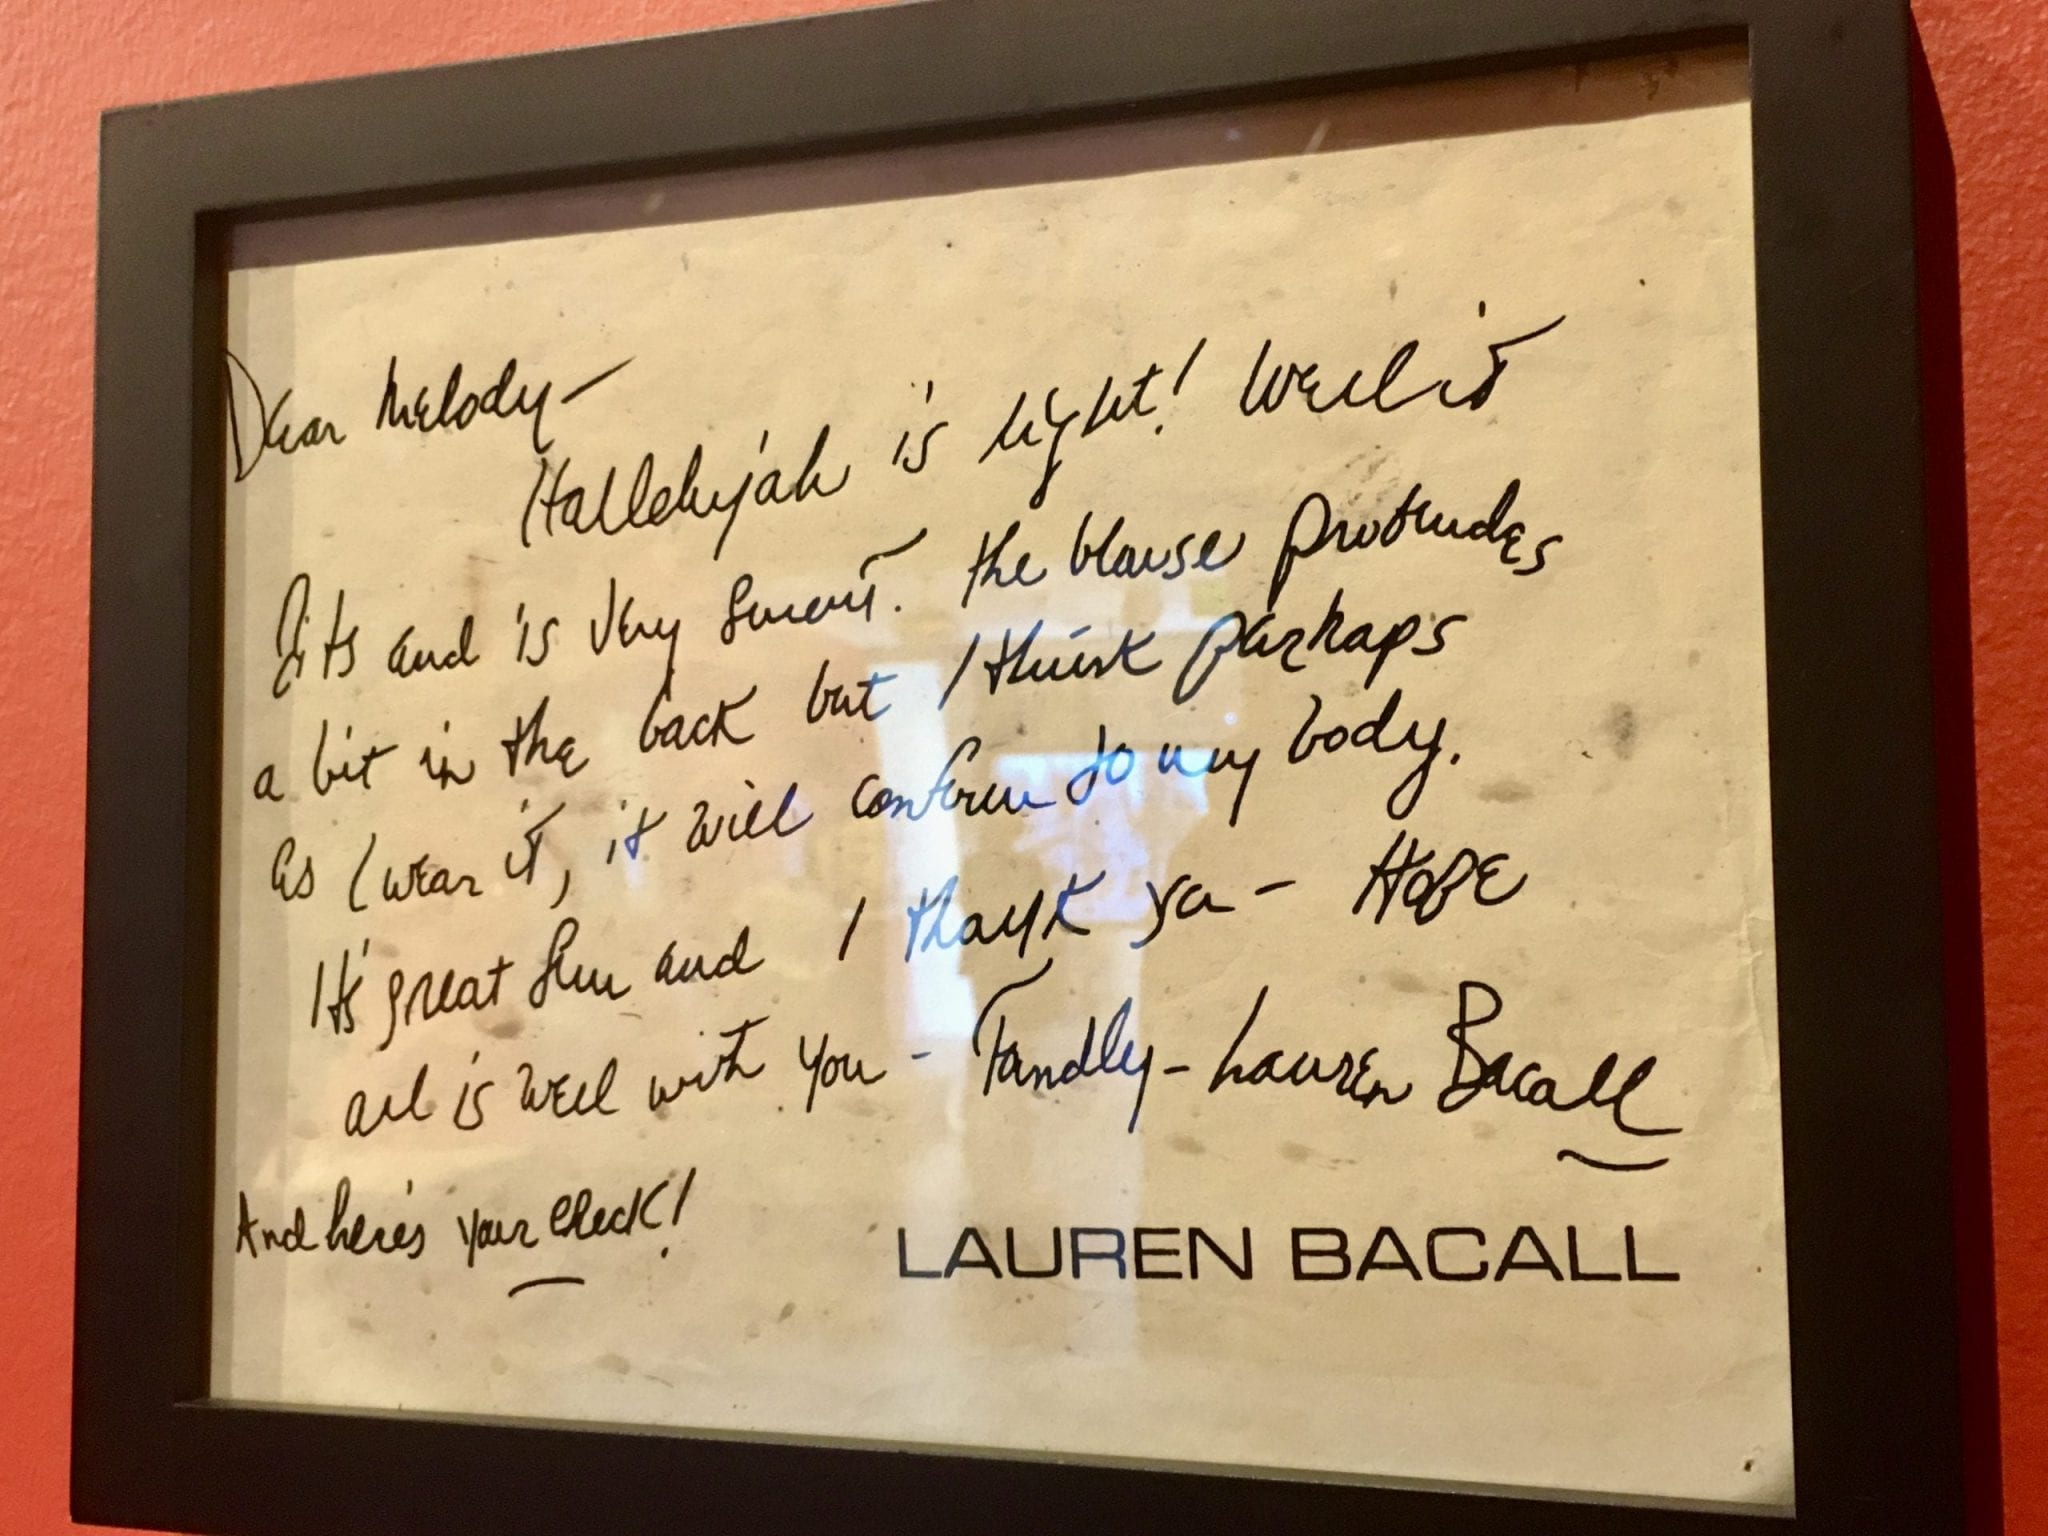 Dear Melody-
Hallelujah is right! Well it
fits and is very smart. The blouse protrudes
a bit in the back but I think perhaps
as I wear it, it will conform to my body.
It's great fun and I thank you - Hope
all is well with you - Fondly - Lauren Bacall
And here's your check!
LAUREN BACALL